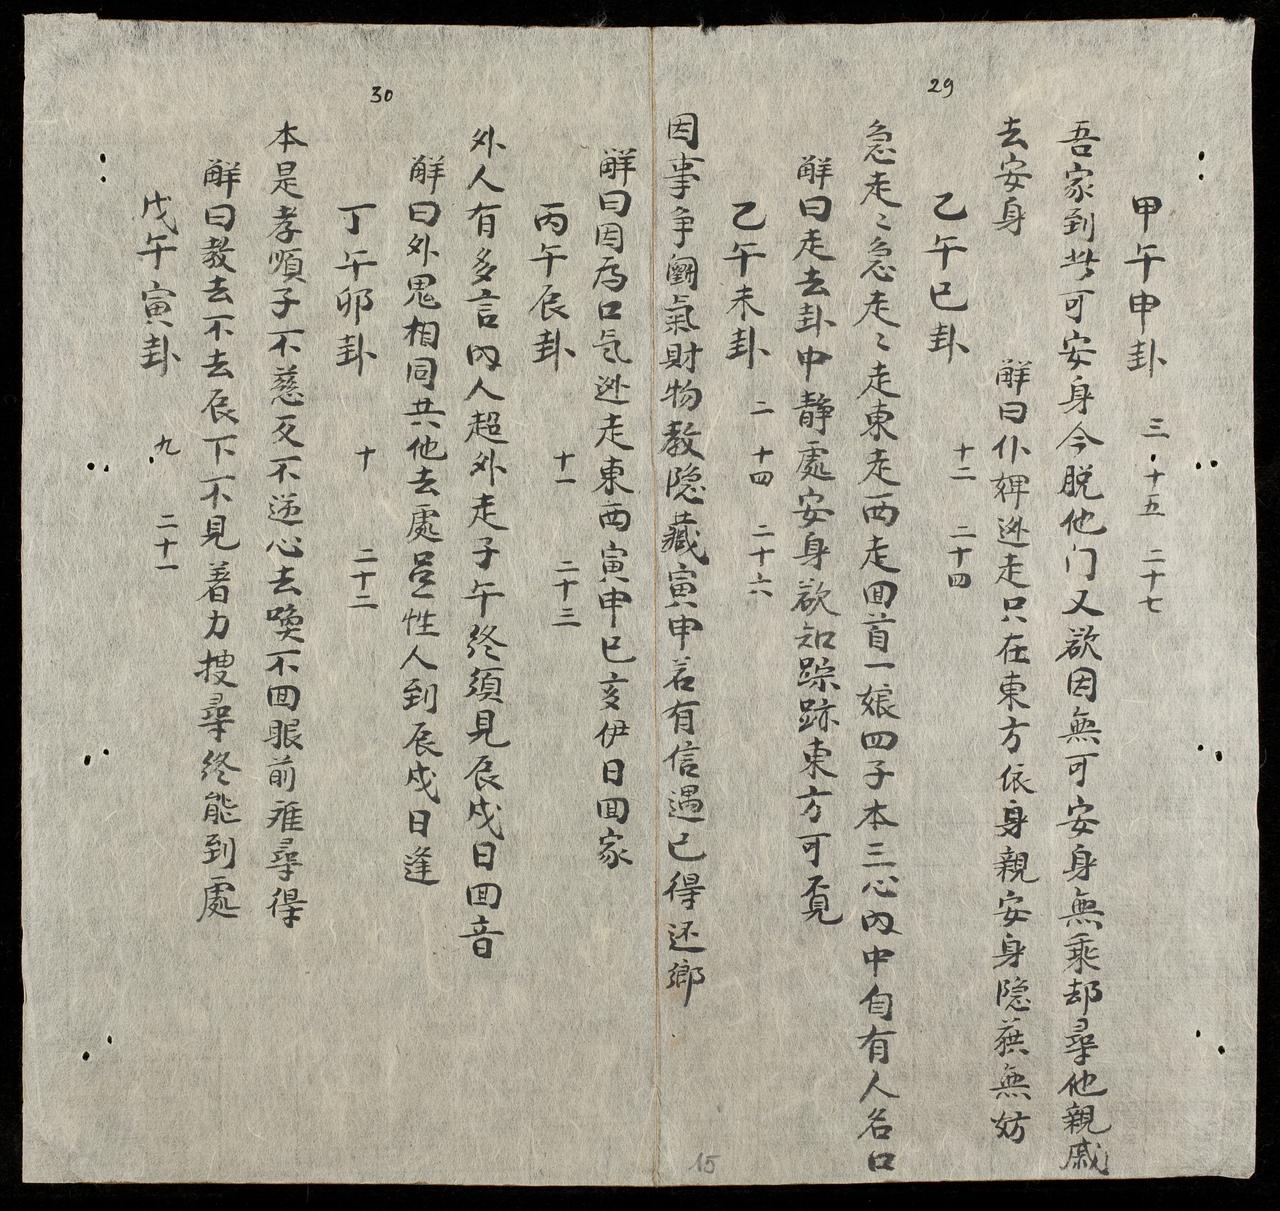 29
甲午申卦 三 十五 二十七
吾家到此可安身今脱他门又欲因無可安身無乘却尋他親戚
去安身 解曰仆婢逃走只在東方依身親安身隐藏無妨
乙午巳卦 十二 二十四
急走〻急走〻走東走西走回首一娘四子本三心内中自有人名口
解曰走去卦中静處安身欲知踪跡東方可覓
乙午未卦 二 十四 二十六
因事争鬭氣財物教隐藏寅申若有信遇巳得还鄉
30
解曰因為口气逃走東西寅申巳亥伊日回家
丙午辰卦 十一 二十三
外人有多言内人超外走子午終須見辰戌日回音
解曰外鬼相同共他去處 性人到辰戌日逢
丁午卯卦 十 二十二
本是孝順子不慈反不逆心去喚不回眼前难尋得
解曰教去不去辰下不見着力搜尋終能到處
戊午寅卦 九 二十一
15